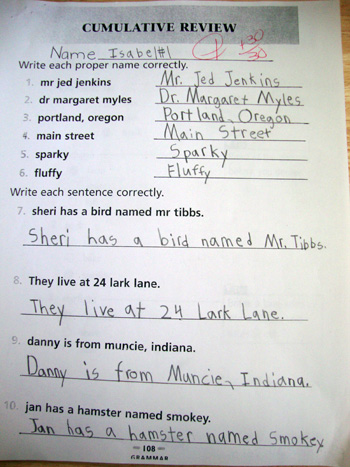 CUMULATIVE REVIEW
Name Isabel#1
+30
30
Write each proper name correctly.
1. mr jed jenkins Mr. Jed Jenkins
2. dr margaret myles Dr. Margaret Myles
3. portland, oregon Portland, Oregon
4. main street Main Street
5. sparky Sparky
6. fluffy Fluffy
Write each sentence correctly.
7. sheri has a bird named mr tibbs.
Sheri has a bird named Mr. Tibbs.
8. They live at 24 lark lane.
They live at 24 Lark Lane.
9. danny is from muncie, indiana.
Danny is from Muncie, Indiana.
10. jan has a hamster named smokey.
Jan has a hamster named Smokey
108
GRAMMAR